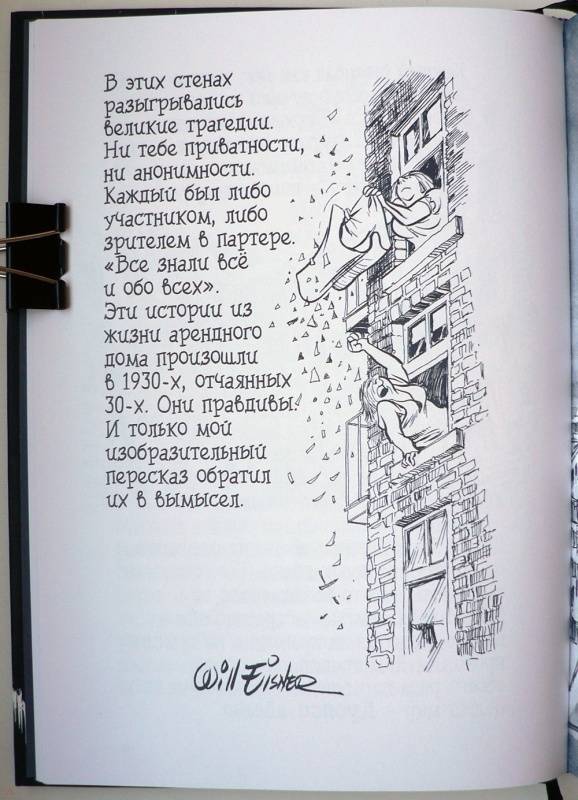 В этих стенах
разыгрывались
великие трагедии.
Ни тебе приватности,
ни анонимности.
Каждый был либо
участником, либо
зрителем в партере.
«Все знали всё
и обо всех».
Эти истории из
жизни арендного
дома произошли
в 1930-х, отчаянных
30-х. Они правдивы.
И только мой
изобразительный
пересказ обратил
их в вымысел.
Will Eisner